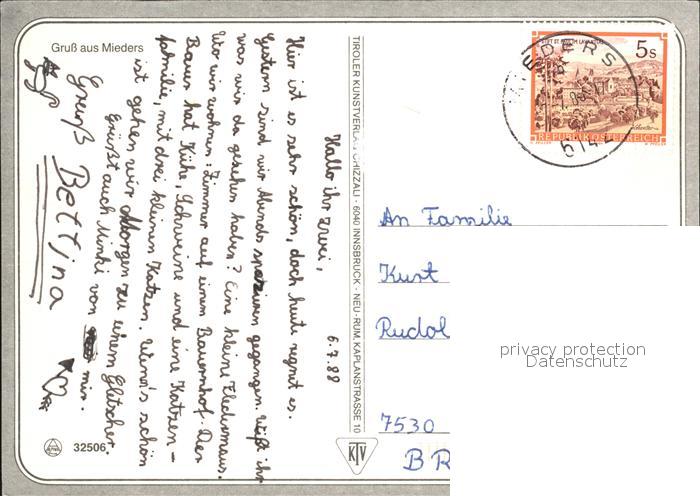 Gruß aus Mieders
6.7.88
Hallo ihr zwei,
Hier ist es sehr schön, doch heute regnet es.
Gestern sind wir Abends spazieren gegangen. Wißt ihr
was wir da gesehen haben? Eine kleine Fledermaus.
Wo wir wohnen: Zimmer auf einem Bauernhof. Der
Bauer hat Kühe, Schweine und eine Katzen-
familie, mit drei kleinen Katzen. Wenn's schön
ist gehen wir Morgen zu einem Gletscher.
Grüßt auch Minki von mir.
Gruß Bettina
32506
TIROLER KUNSTVERLAG CHIZZALI · 6040 INNSBRUCK - NEU-RUM, KAPLANSTRASSE 10
KTV
MIEDERS
6142
STIFT ST. PAUL IM LAVANTTAL
5 S
REPUBLIK ÖSTERREICH
An Familie
Kurt
Rudol
7530
BR
privacy protection
Datenschutz